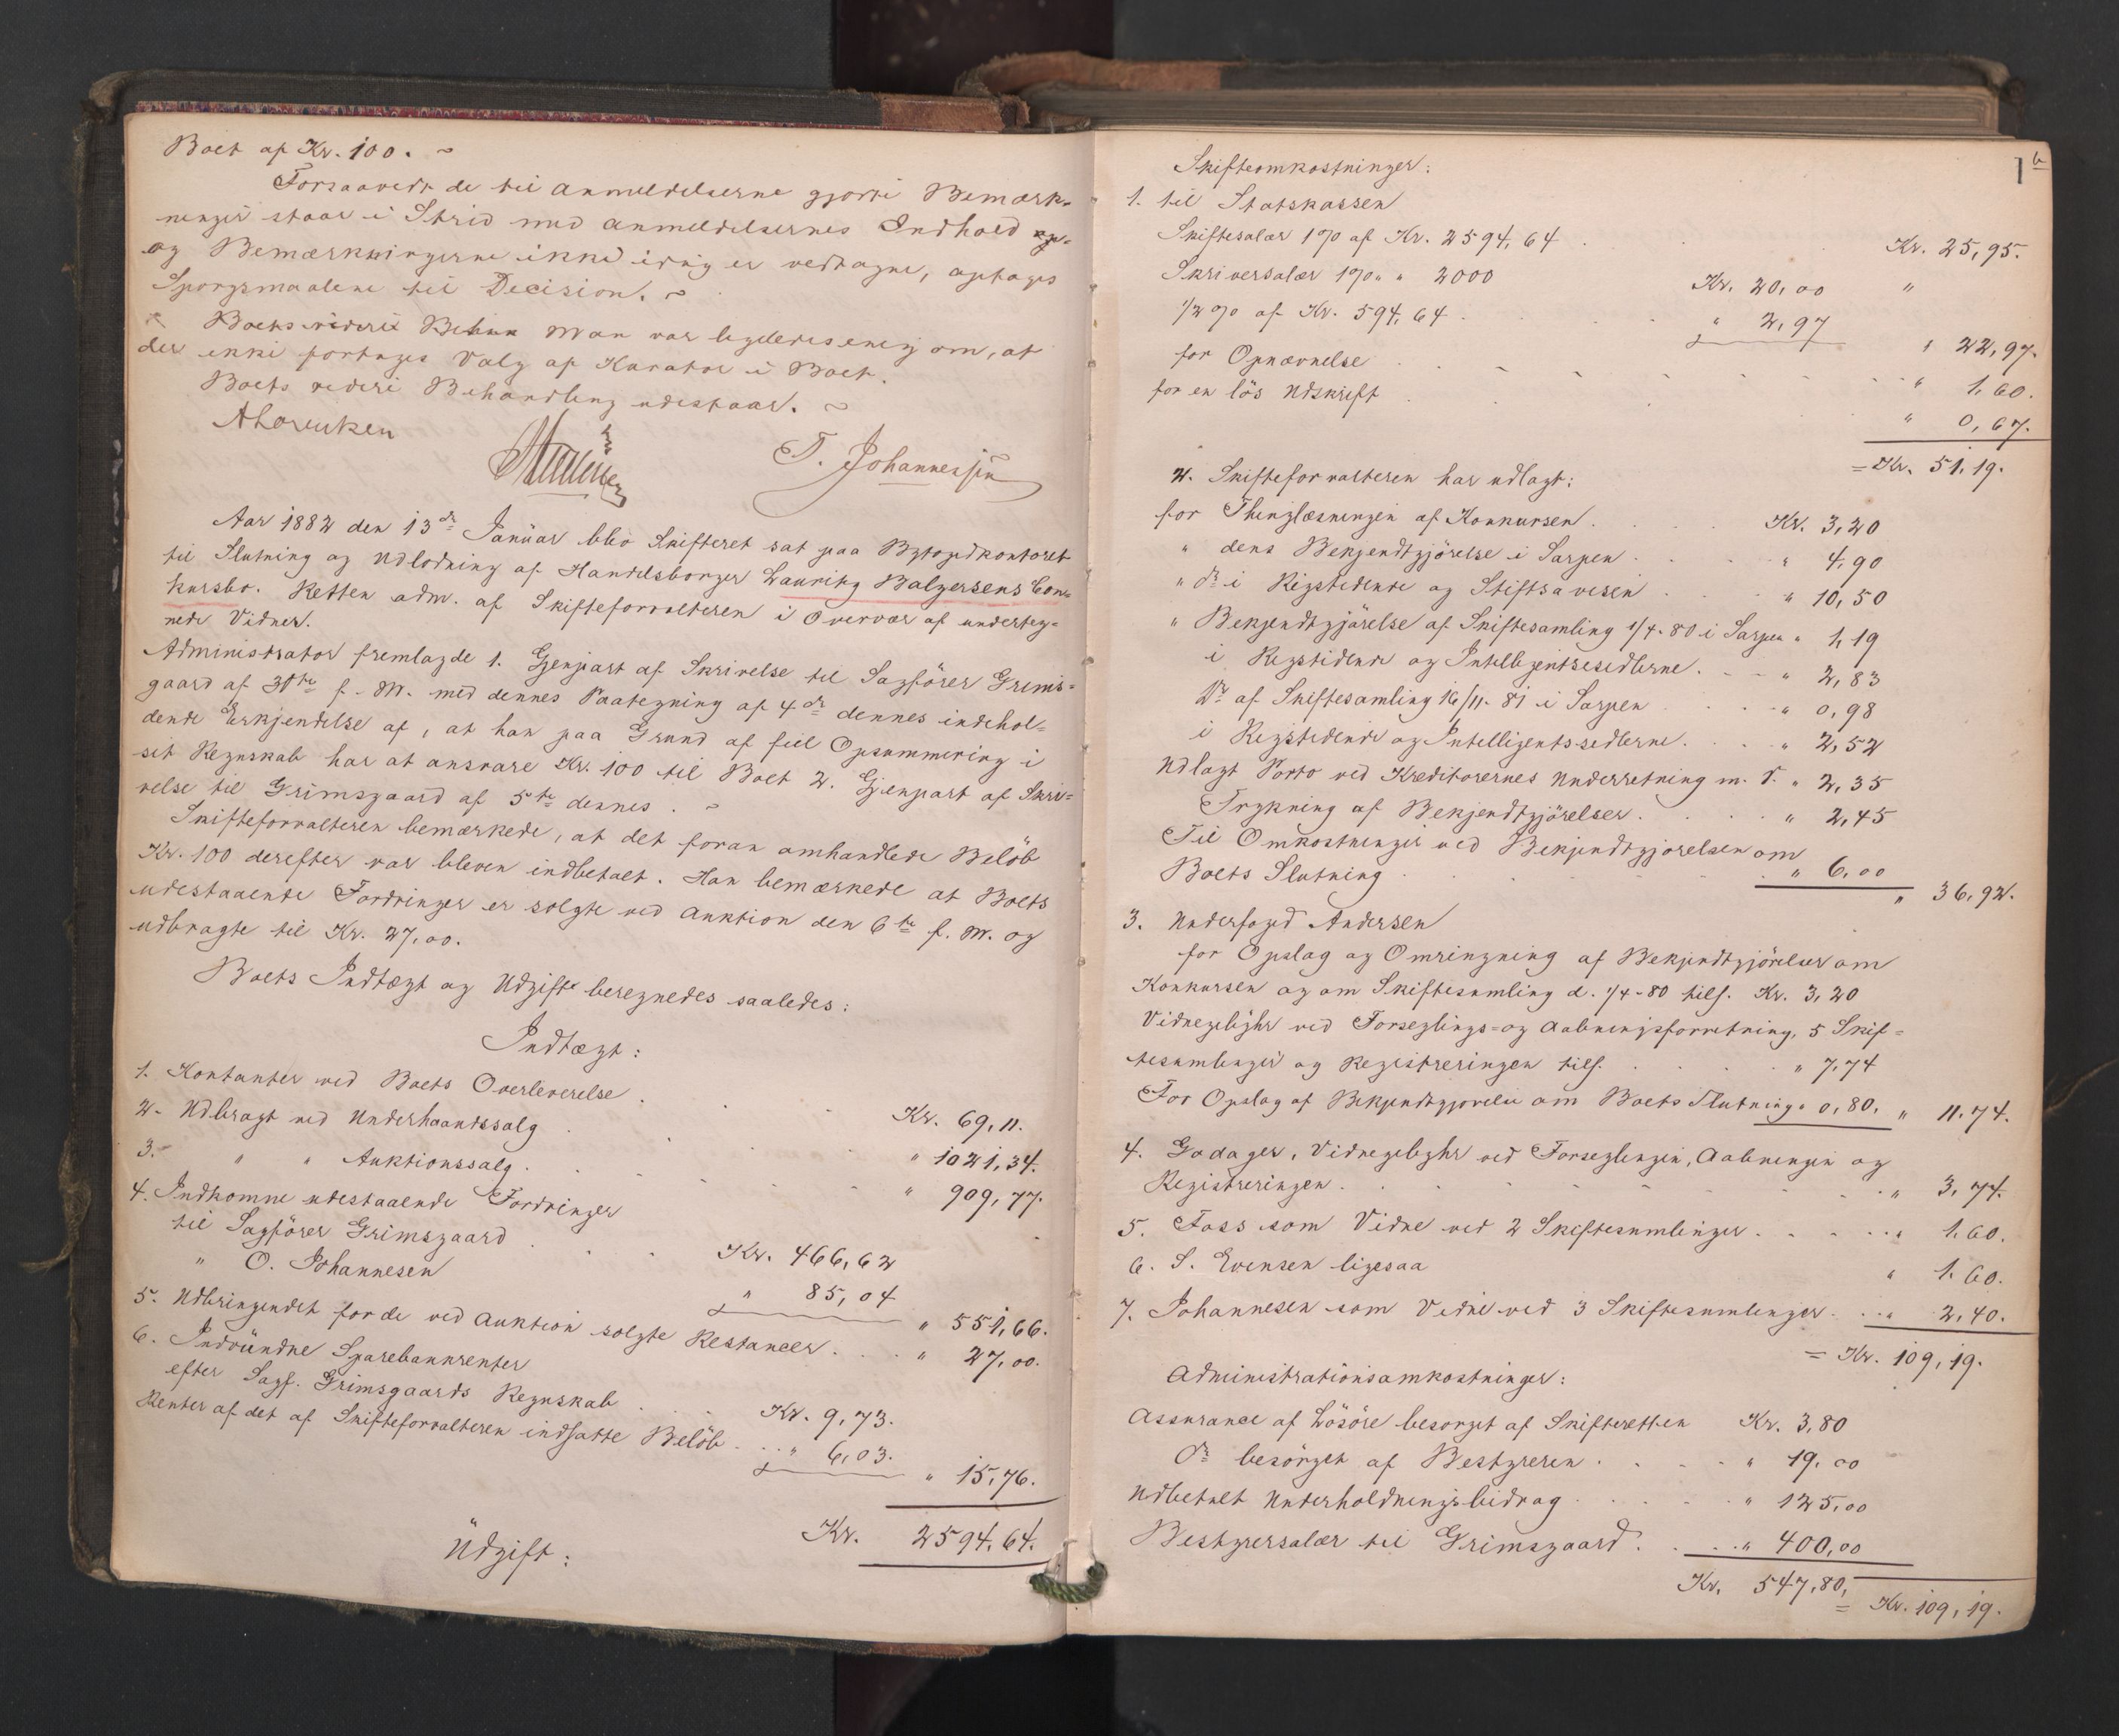 Boet af Kr. 100. ~
Forsaavidt de til Anmeldelserne gjorte Bemærk-
ninger staar i Strid med Anmeldelsernes Indhold
og Bemærkningerne ikke enig er vedtagne, optages
Spørgsmaalene til Decision. ~
Man var ligeledes enig om, at
der ikke foretages Valg af Kurator i Boet.
Boets videre Behandling udestaar. ~
T. Johannessen
Aar 1882 den 13de Januar blev Skifteret sat paa Byfogedkontoret
til Slutning og Udlodning af Handelsborger Lauritz Balgersens Con-
kursbo. Retten adm. af Skifteforvalteren i Overvær af underteg-
nede Vidner.
Administrator fremlagde 1. Gjenpart af Skrivelse til Sagfører Grims-
gaard af 30te f. M. med dennes Paategning af 4de dennes indehol-
dende Erkjendelse af, at han paa Grund af feil Opsummering i
sit Regnskab har at ansvare Kr. 100 til Boet 2. Gjenpart af Skri-
velse til Grimsgaard af 5te dennes. ~
Skifteforvalteren bemærkede, at det foran omhandlede Beløb
Kr. 100 derefter var bleven indbetalt. Han bemærkede at Boets
udestaaende Fordringer er solgte ved Auktion den 6te f. M. og
udbragte til Kr. 27,00.
Boets Indtægt og Udgift beregnedes saaledes:
Indtægt:
1. Kontanter ved Boets Overleverelse . Kr. 69,11.
2. Udbragt ved Underhaandssalg . . . " 1021,34.
3. " " Auktionssalg . . . " 909,77.
4. Indkomne udestaaende Fordringer
til Sagfører Grimsgaard . . . Kr. 466,62
" O. Johannesen " 85,04
" 551,66.
5. Udbringendet for de ved Auktion solgte Restancer . . . " 27,00.
6. Indvundne Sparebankrenter
efter Sagf. Grimsgaards Regnskab . . . Kr. 9,73.
Renter af det af Skifteforvalteren indsatte Beløb . . . " 6,03.
" 15,76.
Kr. 2594,64.
Udgift:
Skifteomkostninger:
1. til Statskassen
Skiftesalær 1% af Kr. 2594,64 . . . Kr. 25,95.
Skriversalær 1% " " 2000 Kr. 20,00 "
1/2 % af Kr. 594,64 . . . " 2,97
" 22,97.
for Opnævnelse . . . " 1,60.
for en løs Udskrift . . . " 0,67.
= Kr. 51,19.
2. Skifteforvalteren har udlagt:
for Thinglæsningen af Konkursen . . . Kr. 3,20
" dens Bekjendtgjørelse i Sarpen . . . " 4,90
" do i Rigstidende og Stiftsavisen . . . " 10,50
" Bekjendtgjørelse af Skiftesamling 1/4-80 i Sarpen " 1,19
i Rigstidende og Intelligentssedlerne . . . " 2,83
Do af Skiftesamling 16/11-81 i Sarpen . . . " 0,98
i Rigstidende og Intelligentssedlerne . . . " 2,52
Udlagt Porto ved Kreditorernes Underretning m. V. " 2,35
Trykning af Bekjendtgjørelser . . . " 2,45
Til Omkostninger ved Bekjendtgjørelsen om
Boets Slutning . . . " 6,00
" 36,92.
3. Underfoged Andersen
for Opslag og Omringning af Bekjendtgjørelser om
Konkursen og om Skiftesamling d. 1/4-80 tils. Kr. 3,20
Vidnegebyhr ved Forseglings- og Aabningsforretning, 5 Skif-
tesamlinger og Registreringen tils. . . . " 7,74
For Opslag af Bekjendtgjørelse om Boets Slutning " 0,80. " 11,74.
4. Godager, Vidnegebyhr ved Forseglingen, Aabningen og
Registreringen . . . " 3,74.
5. Foss som Vidne ved 2 Skiftesamlinger . . . " 1,60.
6. S. Evensen ligesaa " 1,60.
7. Johannesen som Vidne ved 3 Skiftesamlinger . . . " 2,40.
= Kr. 109,19.
Administrationsomkostninger:
Assurance af Løsøre besørget af Skifteretten Kr. 3,80
Do besørget af Bestyreren . . . " 19,00
Udbetalt Underholdningsbidrag . . . " 125,00
Bestyrersalær til Grimsgaard . . . " 400,00
Kr. 547,80, = Kr. 109,19.